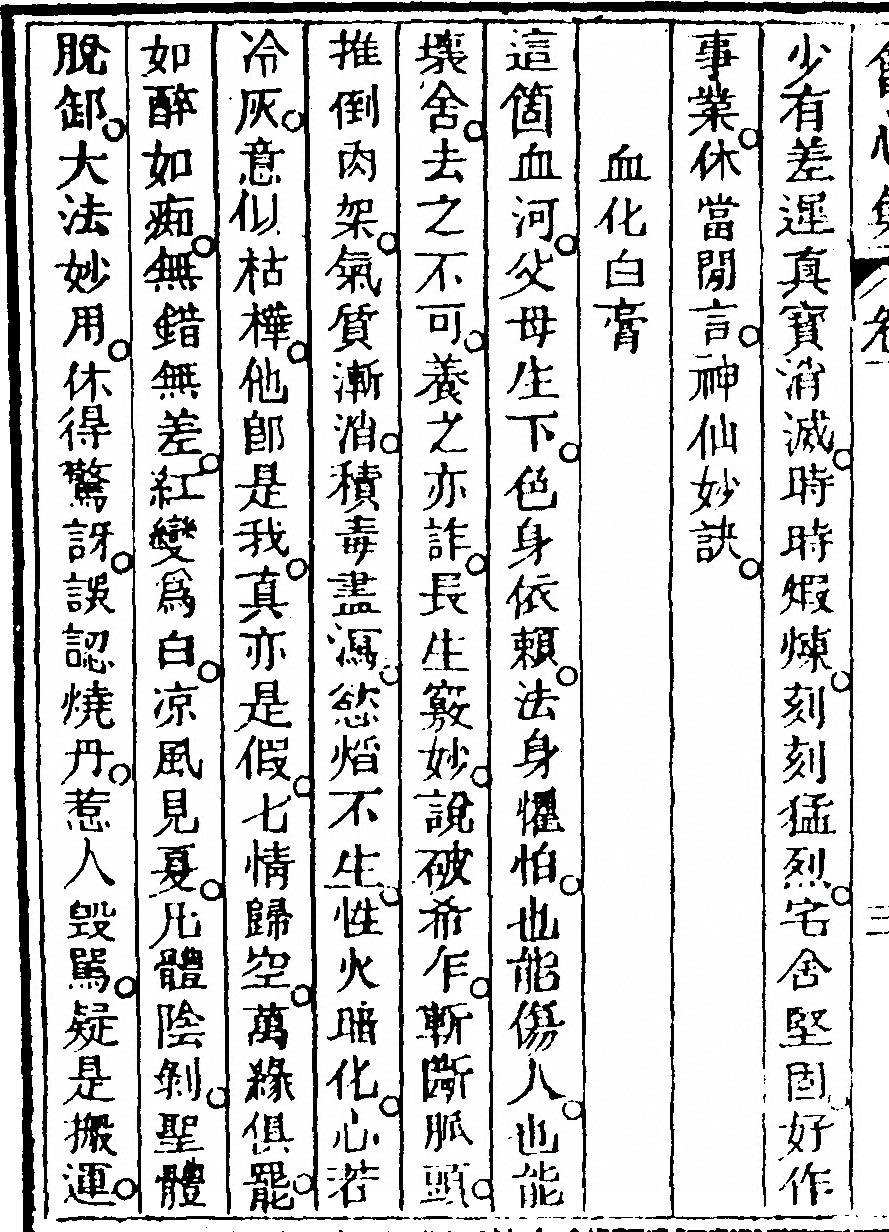 會心集 卷 三
少有差遲真寶消滅。時時煆煉。刻刻猛烈。宅舍堅固。好作
事業。休當閒言。神仙妙訣。
血化白膏
這箇血河。父母生下。色身依賴。法身懼怕。也能傷人。也能
壞舍。去之不可。養之亦詐。長生竅妙。說破希乍。斬斷脈頭。
推倒肉架。氣質漸消。積毒盡瀉。慾焰不生。性火暗化。心若
冷灰。意似枯樺。他卽是我。真亦是假。七情歸空。萬緣俱罷。
如醉如痴。無錯無差。紅變爲白。凉風見夏。凡體陰剝。聖體
脫卸。大法妙用。休得驚訝。誤認燒丹。惹人毀罵。疑是搬運。